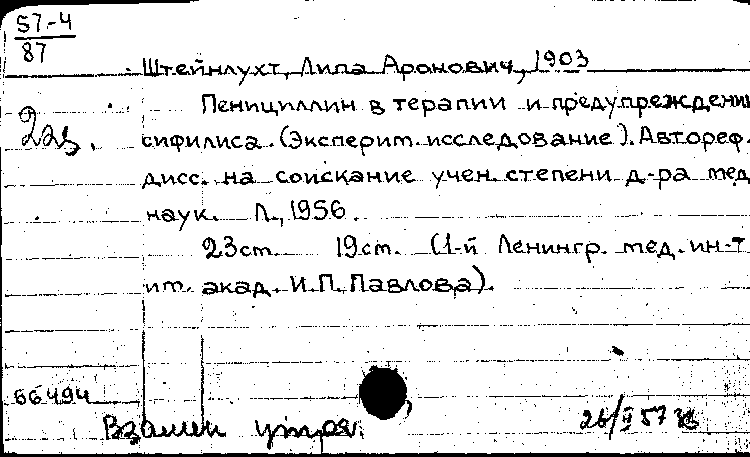 57-4
87
Штейнлухт, Липа Аронович, 1903
Пенициллин в терапии и предупреждении
2 аз.
сифилиса. (Эксперим. исследование). Автореф.
дисс. на соискание учен. степени д-ра мед.
наук. Л., 1956.
23 ст. 19 см. (1-й Ленингр. мед. ин-т
им. акад. И.П. Павлова).
66494
Взамен утрач.
26/II 57